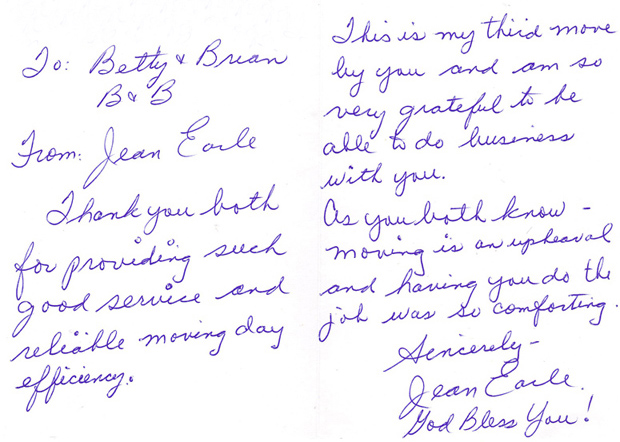 To: Betty & Brian
B & B
From: Jean Earle
Thank you both
for providing such
good service and
reliable moving day
efficiency.
This is my third move
by you and am so
very grateful to be
able to do business
with you.
As you both know -
moving is an upheaval
and having you do the
job was so comforting.
Sincerely -
Jean Earle.
God Bless You!